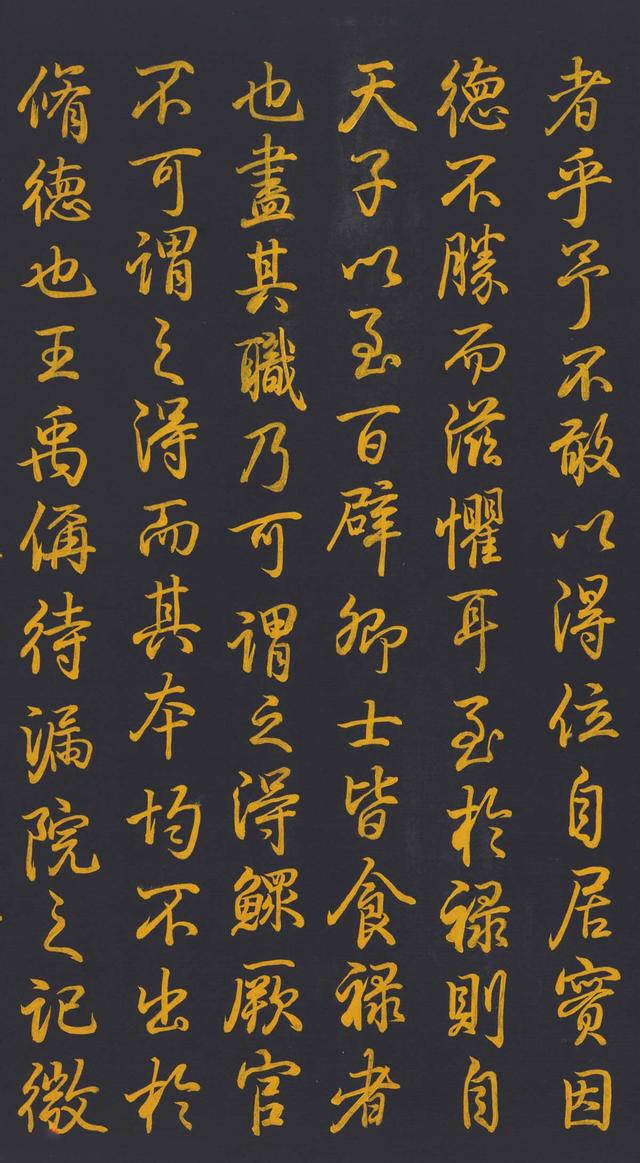 者乎予不敢以得位自居實因
德不勝而滋懼耳至於祿則自
天子以至百辟卿士皆食祿者
也盡其職乃可謂之得鰥厥官
不可謂之得而其本均不出於
脩德也王禹偁待漏院之記微